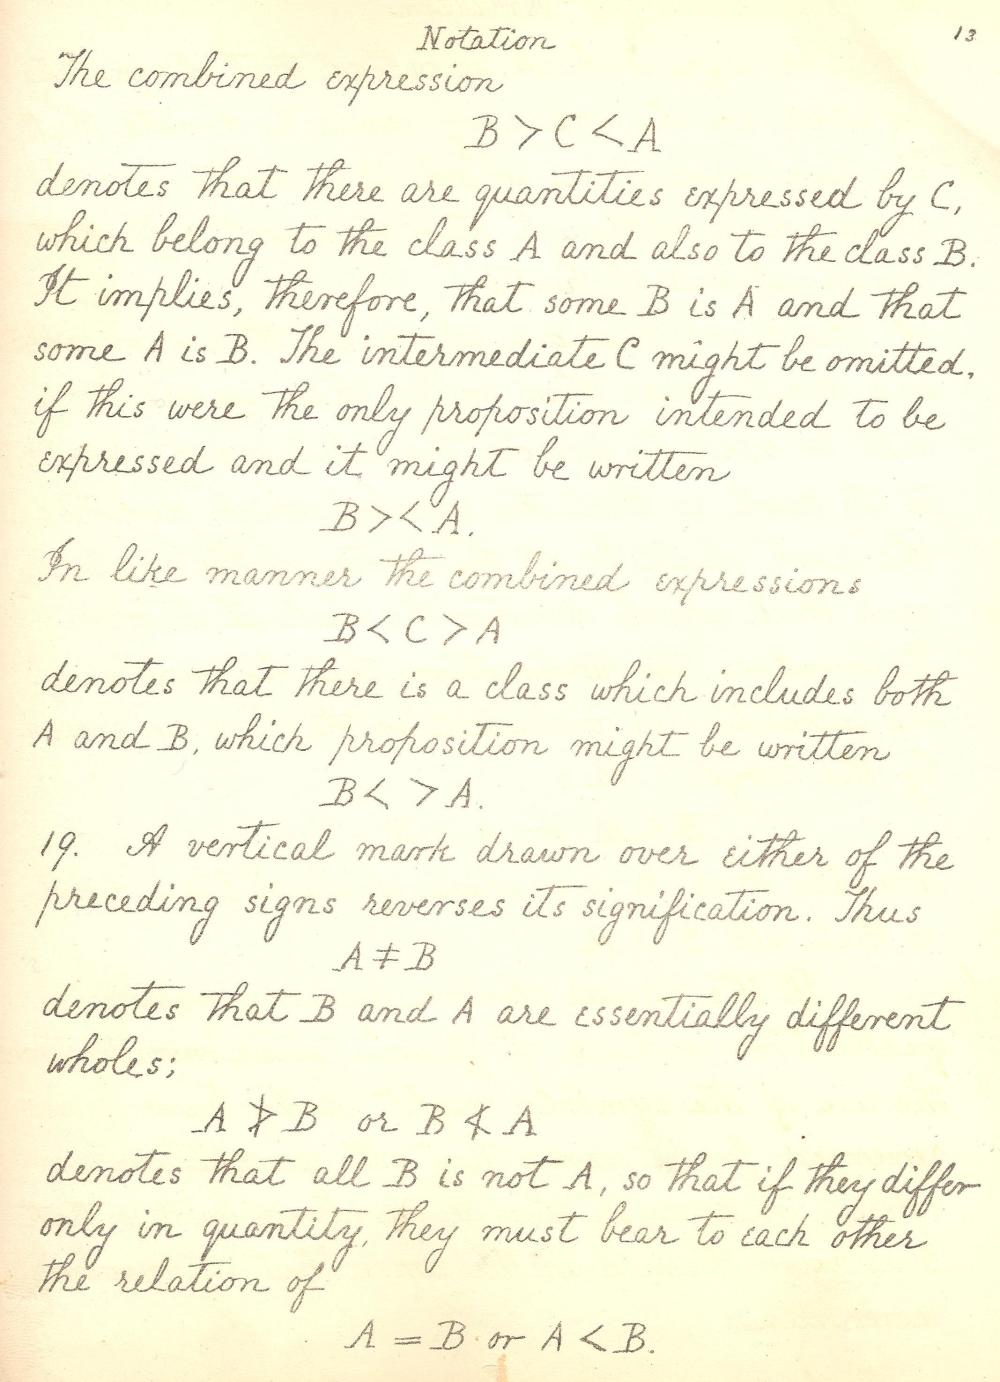 Notation 13
The combined expression
B > C < A
denotes that there are quantities expressed by C,
which belong to the class A and also to the class B.
It implies, therefore, that some B is A and that
some A is B. The intermediate C might be omitted,
if this were the only proposition intended to be
expressed and it might be written
B > < A.
In like manner the combined expressions
B < C > A
denotes that there is a class which includes both
A and B, which proposition might be written
B < > A.
19. A vertical mark drawn over either of the
preceding signs reverses its signification. Thus
A ≠ B
denotes that B and A are essentially different
wholes;
A ≯ B or B ≮ A
denotes that all B is not A, so that if they differ
only in quantity, they must bear to each other
the relation of
A = B or A < B.